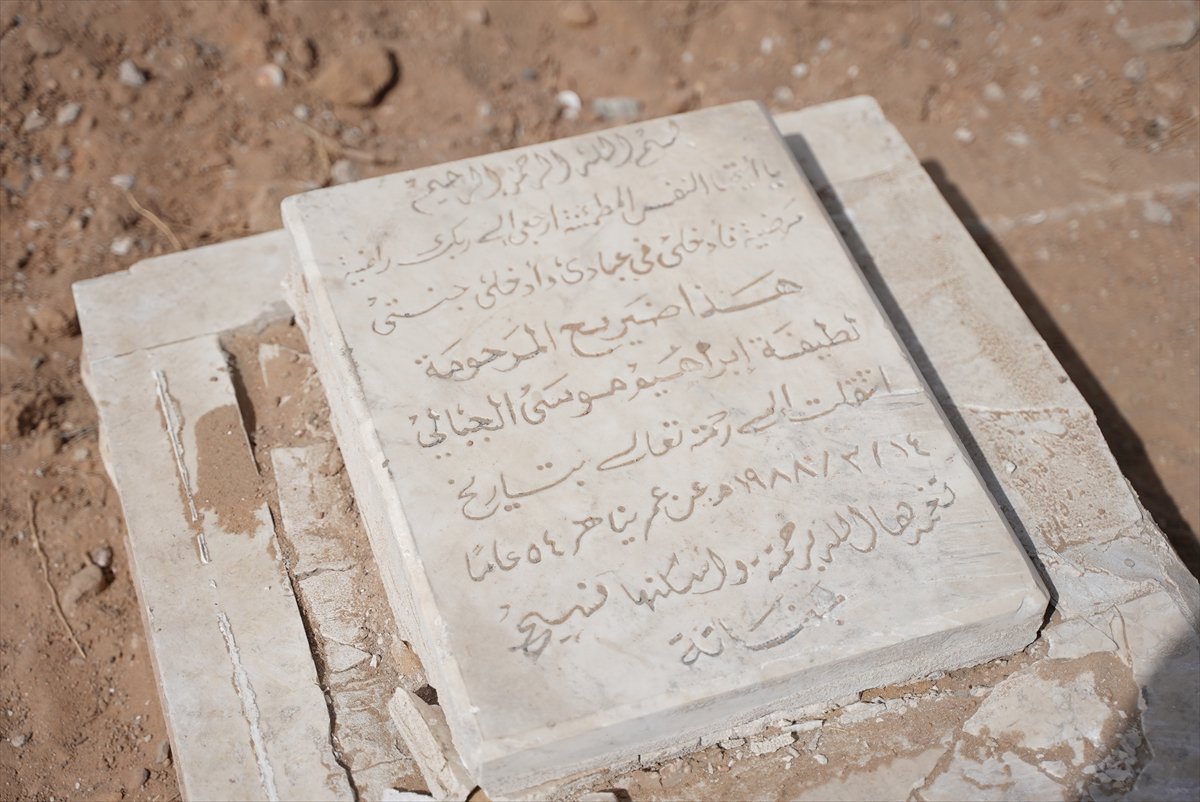 بسم الله الرحمن الرحيم
يا أيتها النفس المطمئنة ارجعي إلى ربك راضية
مرضية فادخلي في عبادي وادخلي جنتي
هذا ضريح المرحومة
لطيفة ابراهيم موسى الجبالي
انتقلت الى رحمة تعالى بتاريخ
١٤/٣/١٩٨٨م عن عمر يناهز ٥٤ عامًا
تغمدها الله برحمة واسكنها فسيح
جناتة